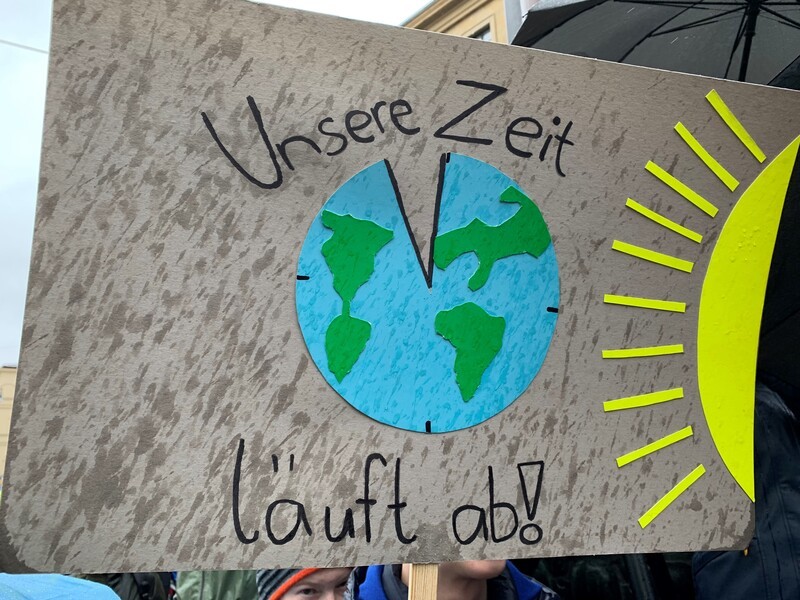 Unsere Zeit
läuft ab!